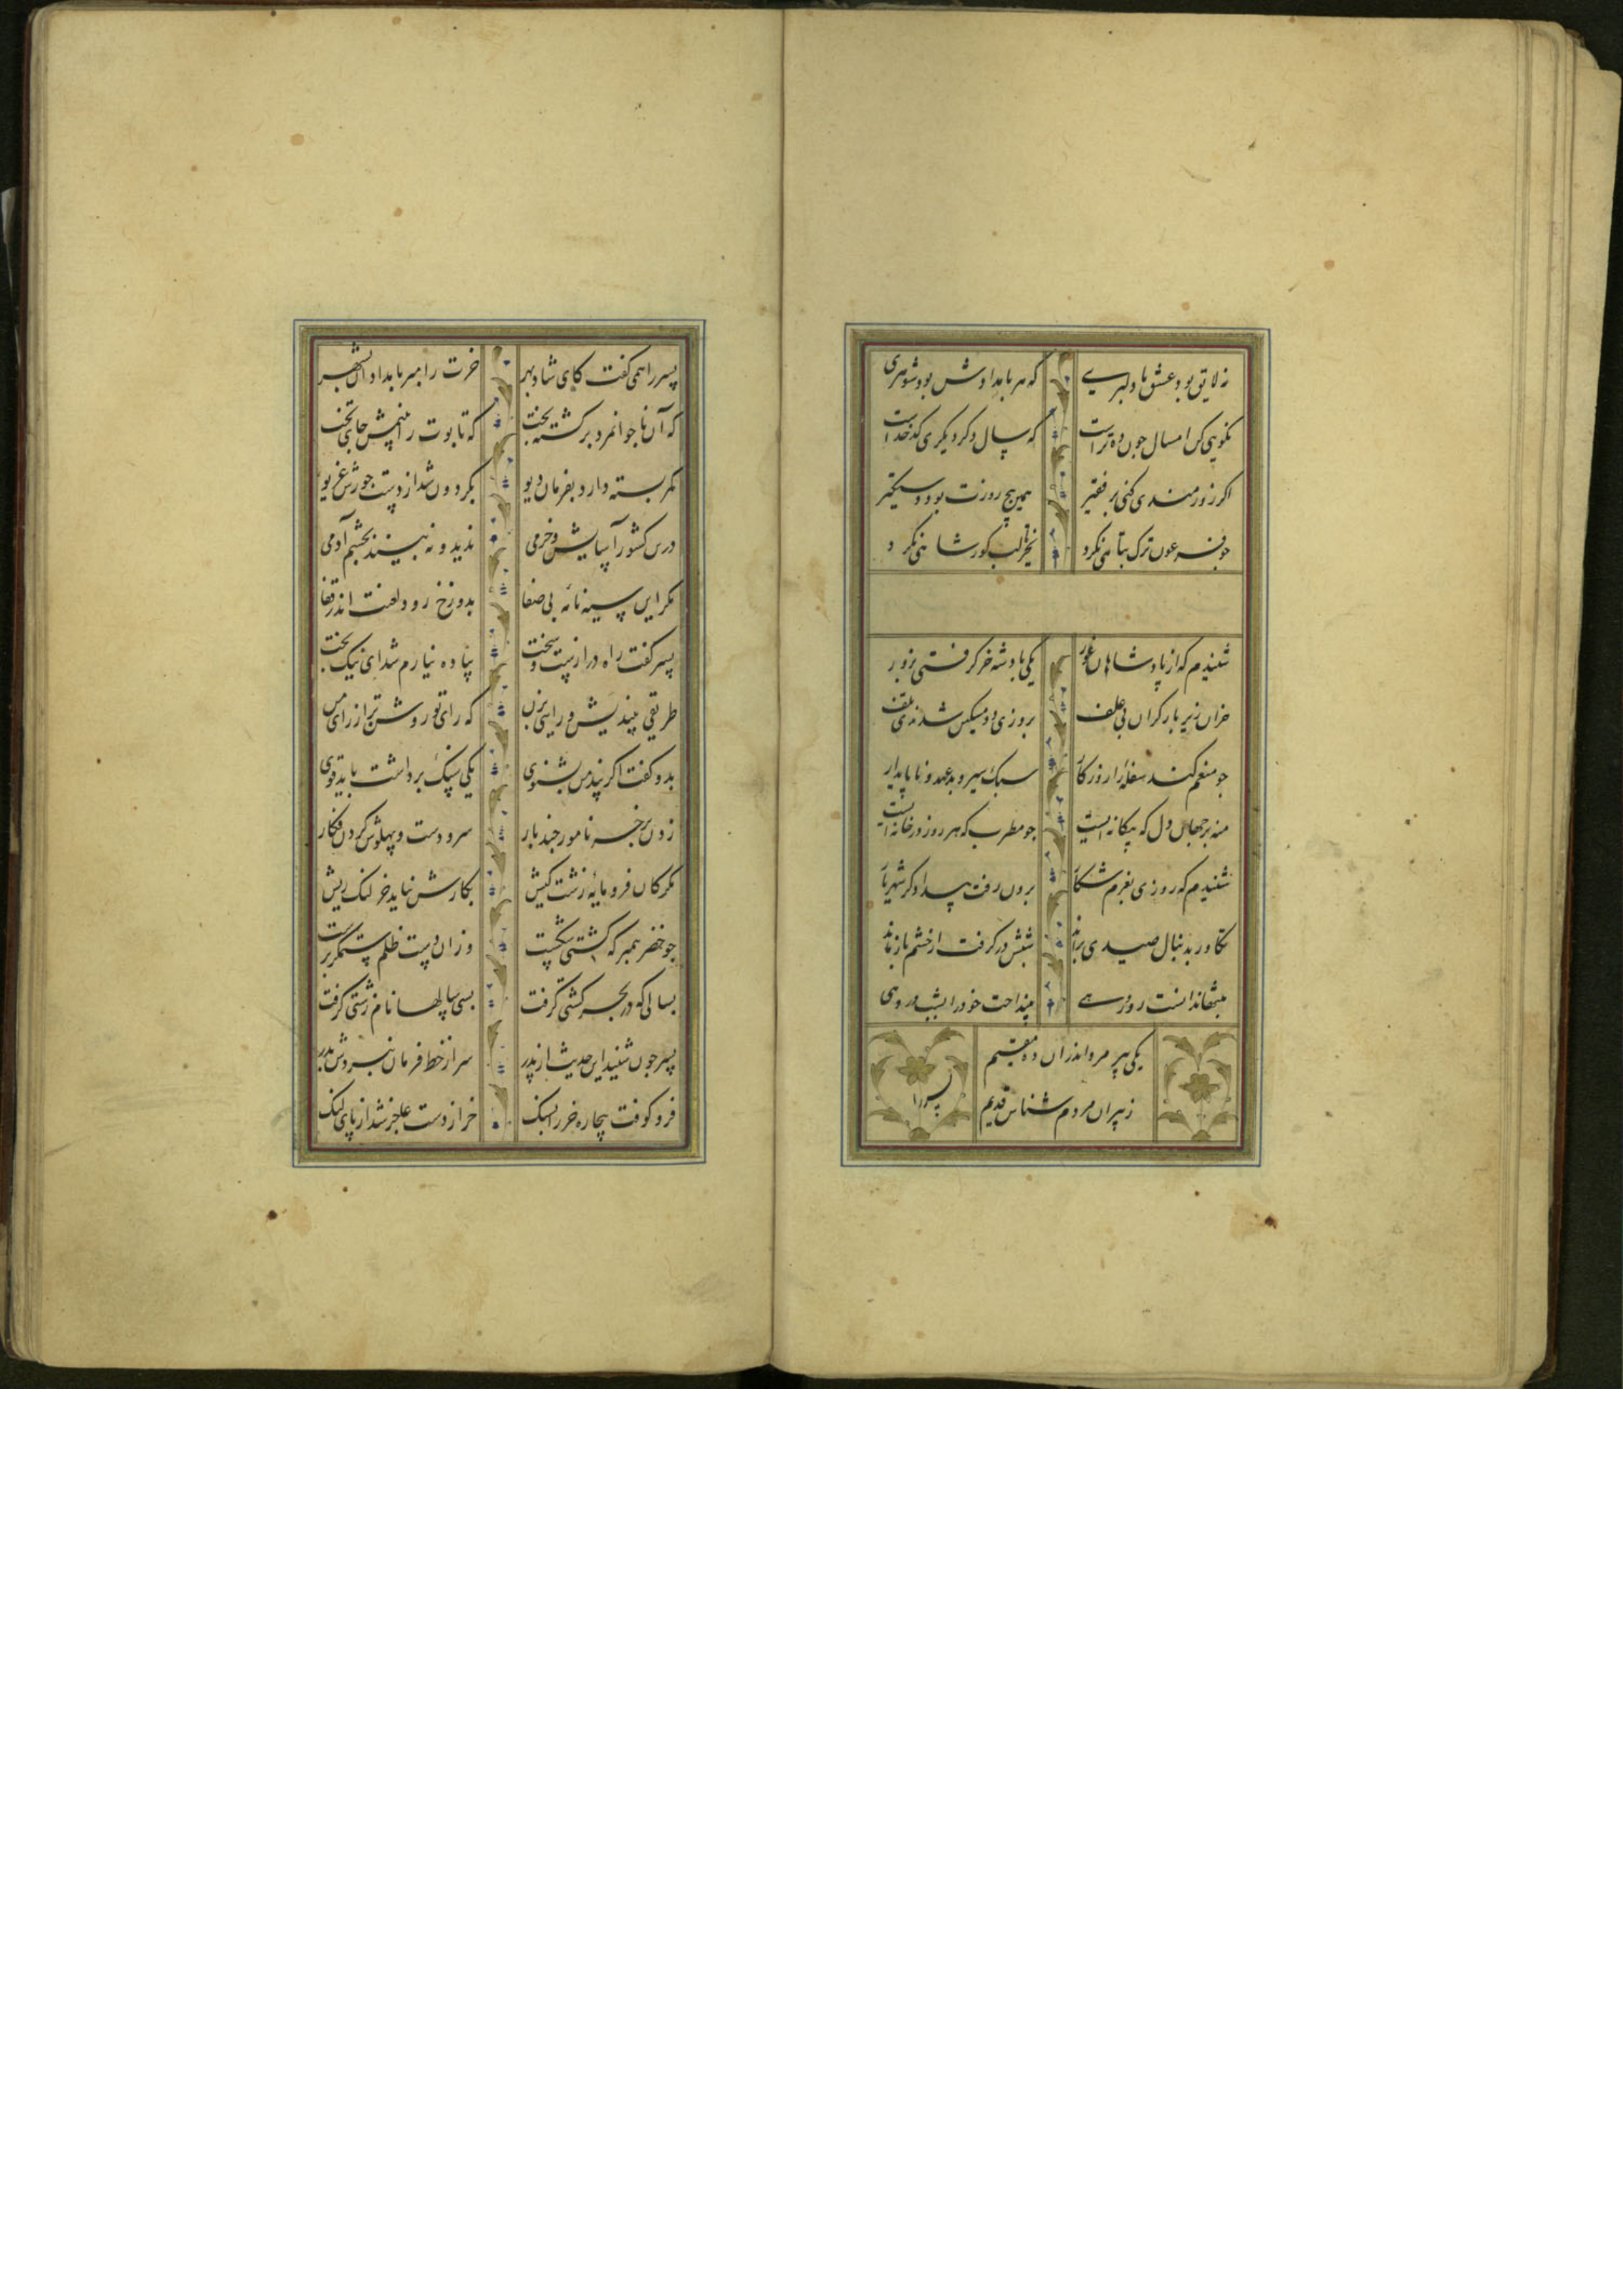 نه لایق بود عشق با دلبری که هر بامدادش بود شوهری
نکویی کن امسال چون ده تراست که سال دگر دیگری کدخداست
اگر زورمندی کنی بر فقیر همین پنج روزت بود دستگیر
چو فرعون ترک تباهی نکرد بجز تا لب گور شاهی نکرد
شنیدم که از پادشاهان غور یکی پادشه خر گرفتی بزور
خران زیر بار گران بی علف بروزی دو مسکین شدندی تلف
چو منعم کند سفله را روزگار
منه بر جهان دل که بیگانه ایست چو مطرب که هر روز در خانه ایست
سبک سیر و بدعهد و ناپایدار
شنیدم که روزی بعزم شکار برون رفت بیدادگر شهریار
تکاور بدنبال صیدی براند شبش درگرفت از حشم باز ماند
بتنها ندانست روی و رهی بینداخت خود را بشب در دهی
یکی پیر مرد اندران ده مقیم
ز پیران مردم شناس قدیم
پسر را همی گفت کای شاد بهر خرت را مبر بامدادان بشهر
که آن ناجوانمرد برگشته بخت که تابوت را بینمش جای تخت
کمر بسته دارد بفرمان دیو بگردون شد از دست جورش غریو
درین کشور آسایش و خرمی ندید و نه بیند بچشم آدمی
مگر این سیه نامه بی صفا بدوزخ رود لعنت اندر قفا
پسر گفت راه درازست و سخت پیاده نیارم شد ای نیک بخت
طریقی بیندیش و رایی بزن که رای تو روشن تر از رای من
بدو گفت اگر پند من بشنوی یکی سنگ برداشت باید قوی
زدن بر خر نامور چند بار سر و دست و پهلوش کردن فگار
مگر کان فرومایه زشت کیش بکارش نیاید خر لنگ ریش
چو خضر پیمبر که کشتی شکست وزان دست ظلم ستمگر ببست
بسالی که در بحر کشتی گرفت بسی سالها نام زشتی گرفت
پسر چون شنید این حدیث از پدر سر از خط فرمان نبردش بدر
فرو کوفت بیچاره خر را بسنگ خر از دست عاجز شد از پای لنگ